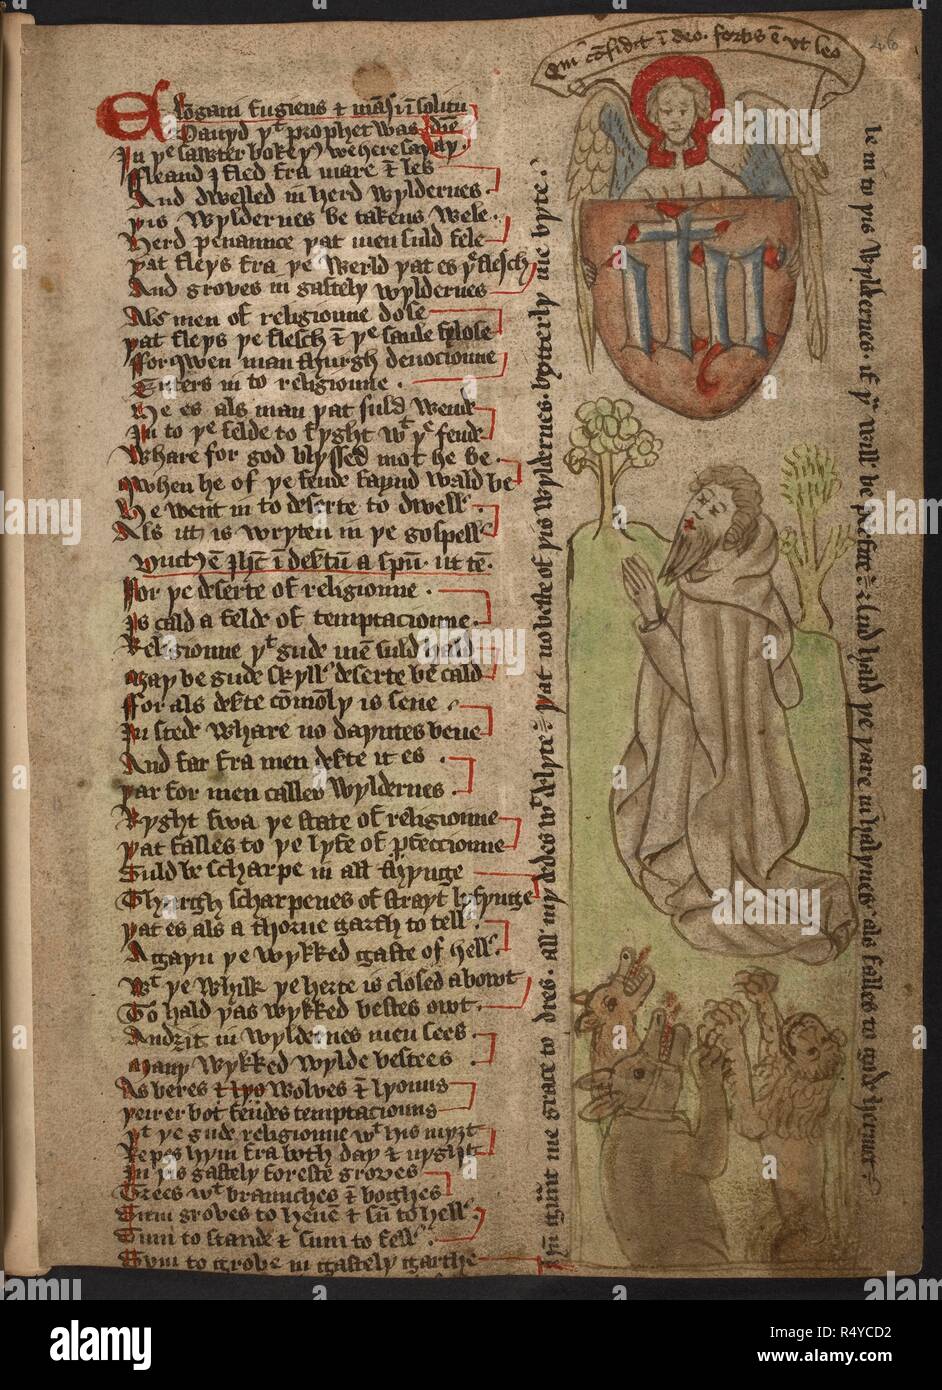 Qui cōfidit ī deo. fortis ē ut leo
46
Elōgaui fugiens & māsi ī solitu
Dauyd yᵗ prophet was
In yᵉ sawter boke yus we here say ay.
dīe
Fleand I fled fra mare & les
And dwelled in herd wyldernes.
yis wyldernes be takens wele.
Herd penaunce yat men suld fele
yat fleys fra ye werld yat es yᵉ flesch
And groves in gastely wyldernes
Als men of religioune dose
yat fleys ye flesch & yᵉ saule
For qwen man thurgh deuocioune
Enters in to religioune.
He es als man yat suld wende
In to yᵉ felde to fyght wᵗ yᵉ fende
Whare for god blyssed mot he be.
qwhen he of ye fende wald be
He went in to deserte to dwell
Als itt is wryten in ye gospell
Ductus ē Ihc ī dēstū a spū. ut tē.
For ye deserte of religioune.
Is cald a felde of temptacioune.
Religioune yᵗ gude mē suld hald
may be gude skyll deserte be cald
For als dēste cōmōly is sene.
In stede whare no dayntes bene
And far fra men dēste it es.
yar for men calles wyldernes.
Ryght swa ye state of religioune
yat falles to ye lyfe of pfeccioune
Suld be scharpe in all thynge
Thurgh scharpenes of strayt lyfynge
yat es als a thorne garth to tell.
Agayn ye wykked gaste of hell.
Wᵗ ye whilk ye herte is closed abowt
To hald yas wykked bestes owt.
And zit in wyldernes men sees.
many wykked wylde bestees
As beres & lyo wolves & lyouns
yeir er bot fendes temptaciouns
yᵗ ye gude religioune wᵗ his myzt
Kepes hym fra both day & nyght
In yis gastely foreste groves
Trees wᵗ braunches & boghes
Sum groves to heuē & sū to hell
Sum to stande & sum to fell.
Sum to grobe in gastely garthe
Ihū graūt me grace to dres. all my dedes wᵗ delyte yat no beste of yis wyldernes. bytterly me byte.
le in to yis wyldernes. if yᵘ will be pfite And hald ye yare in halynes als falles to gode hermet